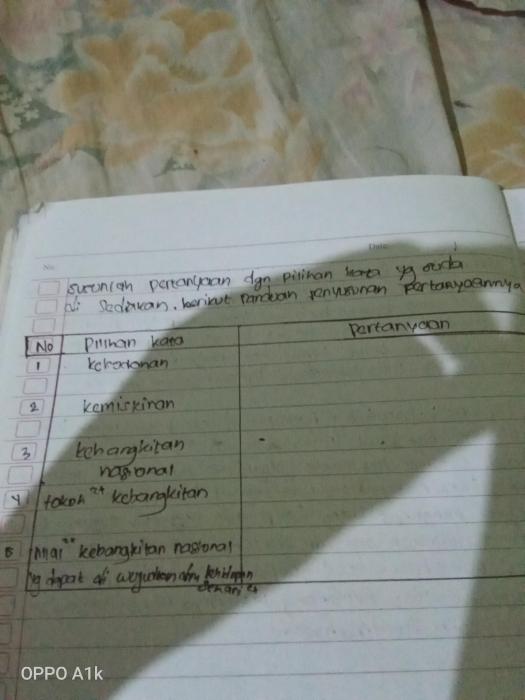 No.
Date
susunlah pertanyaan dgn pilihan kata yg
di sediakan. berikut panduan penyusunan pertanyaannya
No pilihan kata pertanyaan
1
2 kemiskinan
3 kebangkitan
nasional
4 tokoh" kebangkitan
5 nilai" kebangkitan nasional
yg dapat di
OPPO A1k